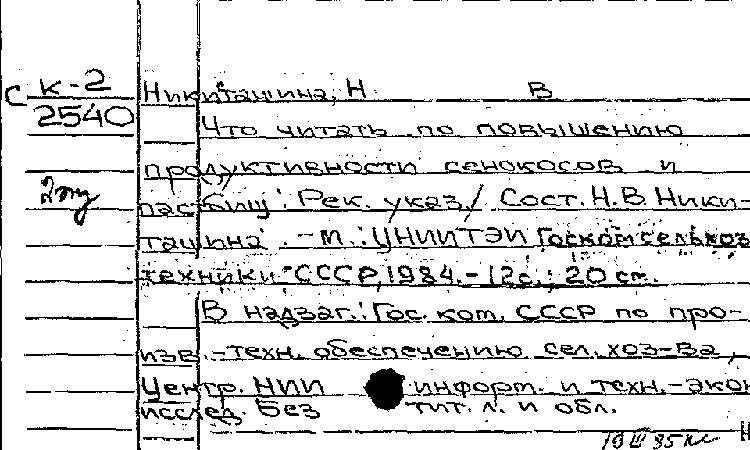 С К-2
2540
Никиташина, Н В
Что читать по повышению
продуктивности сенокосов и
пастбищ : Рек. указ. / Сост. Н. В. Ники-
ташина. - М. : ЦНИИТЭИ Госкомсельхоз
техники СССР, 1984. - 12 с. ; 20 см.
В надзаг. : Гос. ком. СССР по про-
изв. -техн. обеспечению сел. хоз-ва,
Центр. НИИ информ. и техн. -экон
исслед. Без тит. л. и обл.